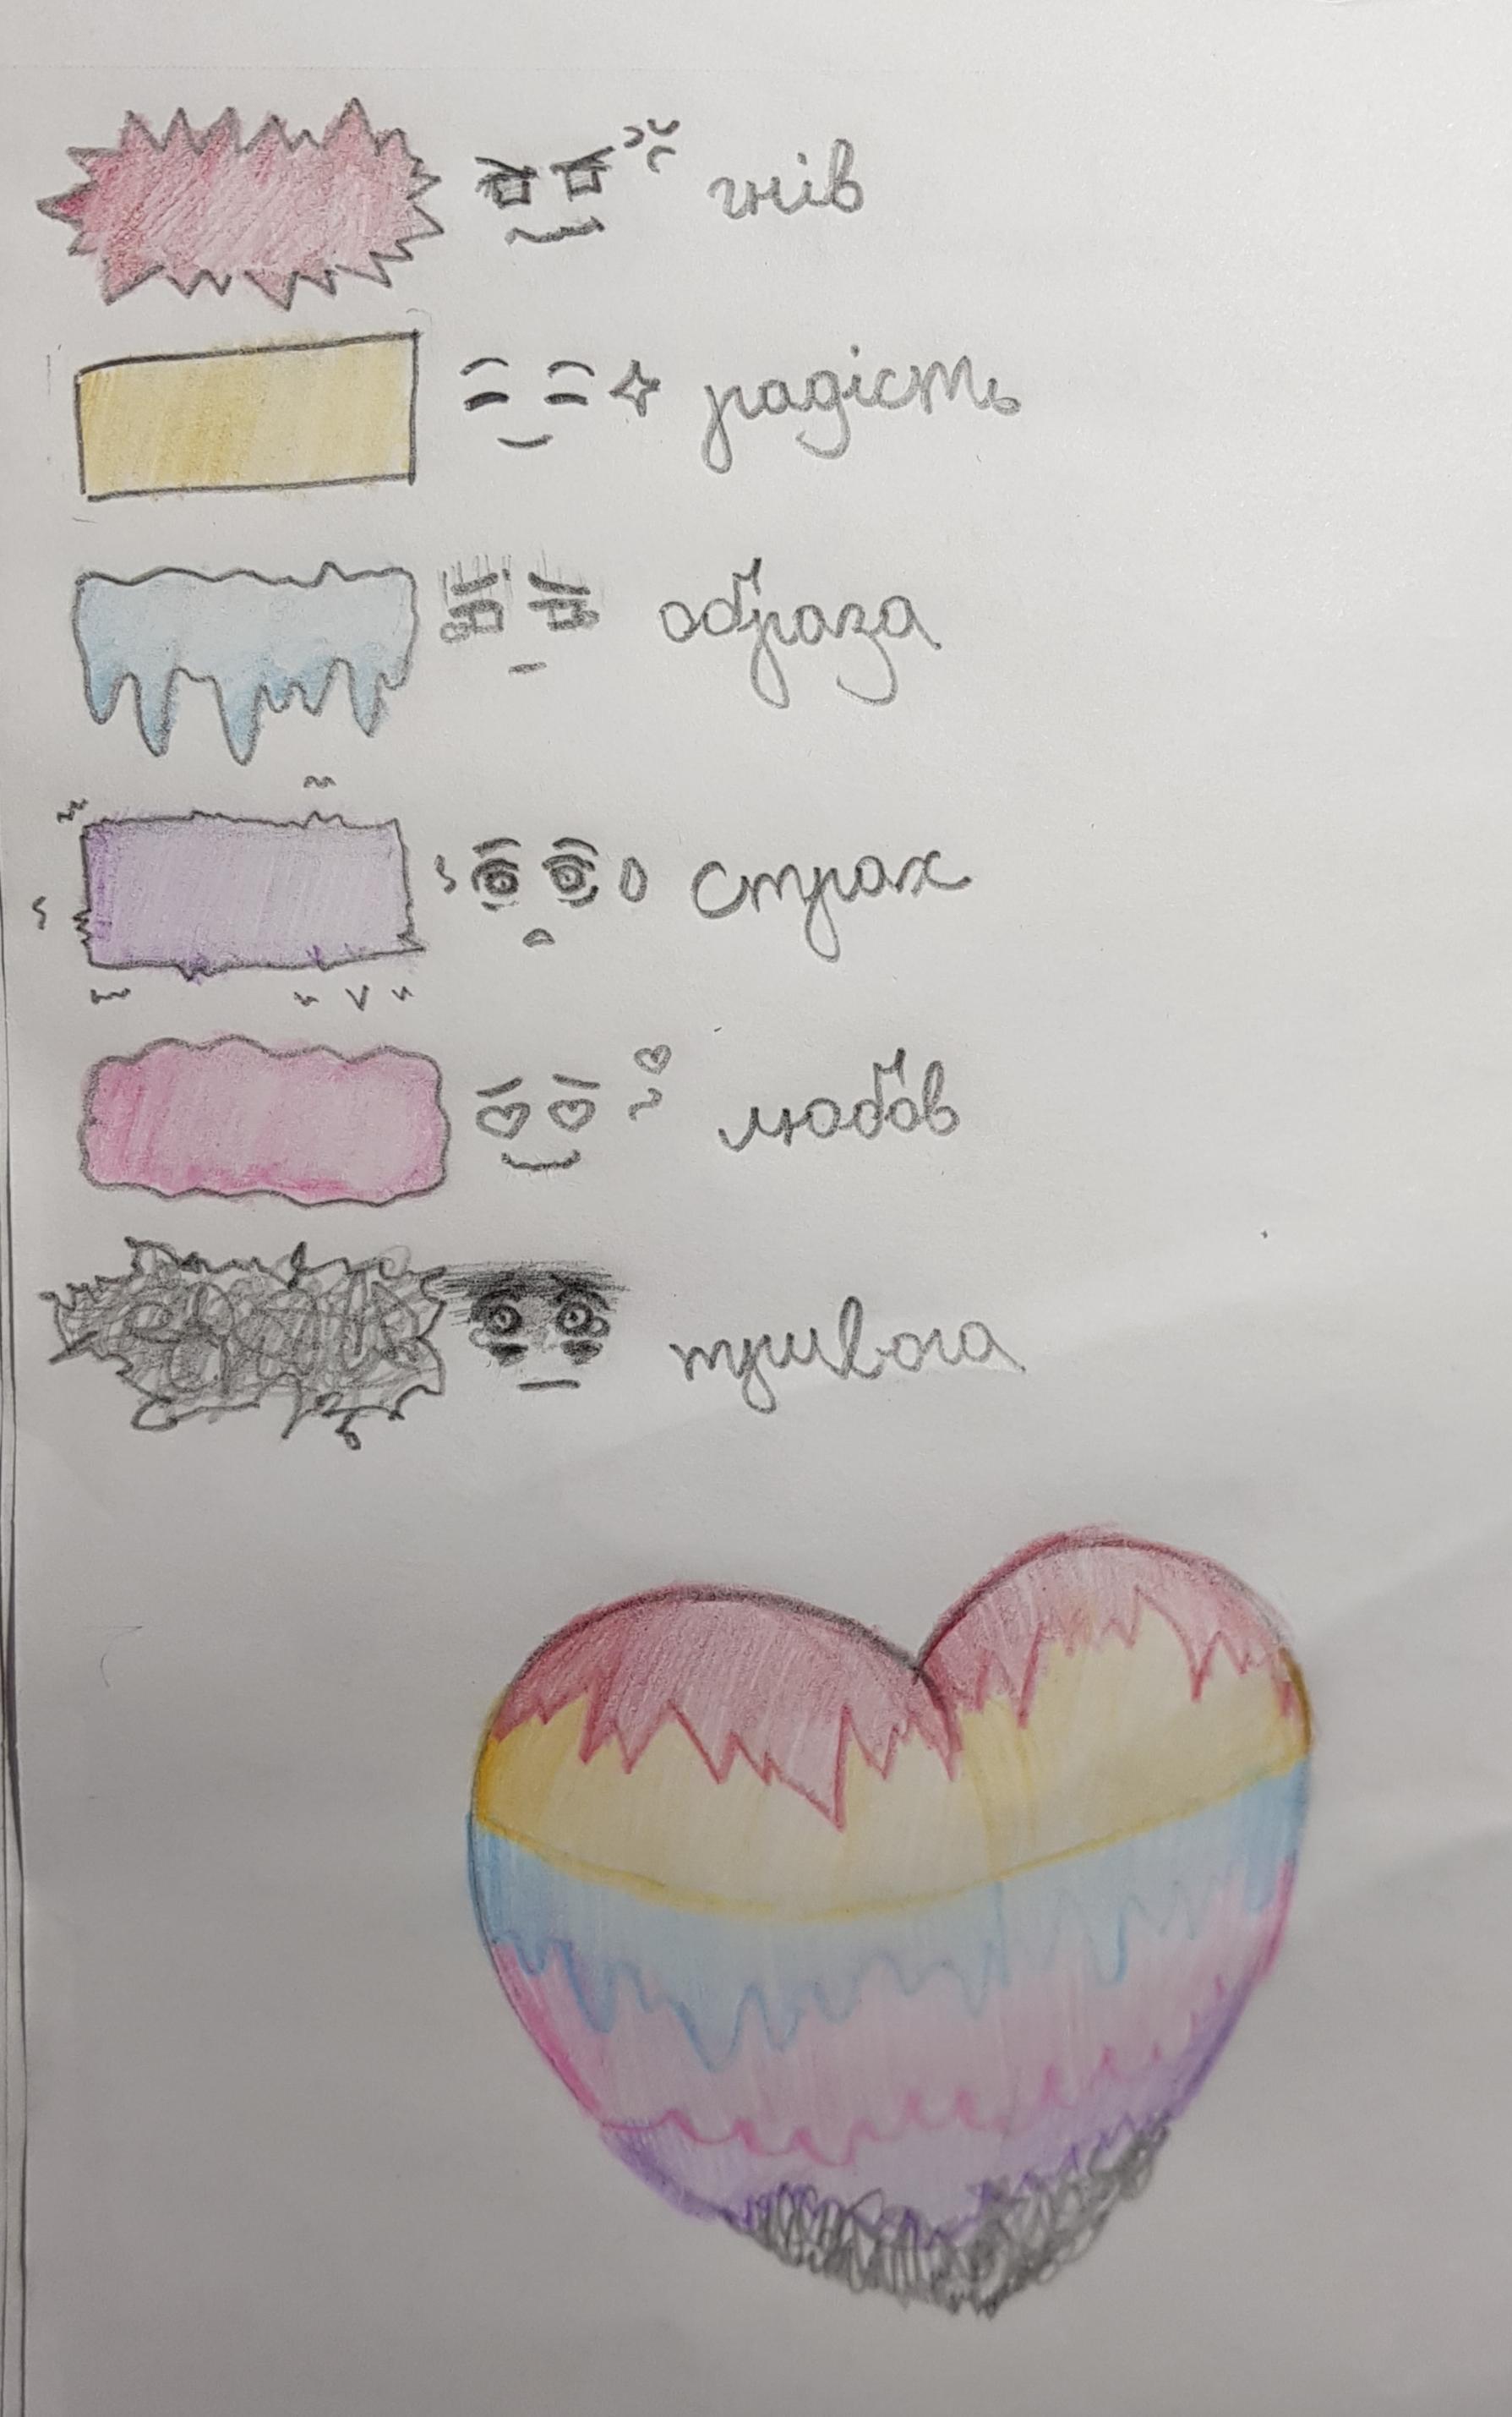 гнів
радість
образа
страх
любов
тривога